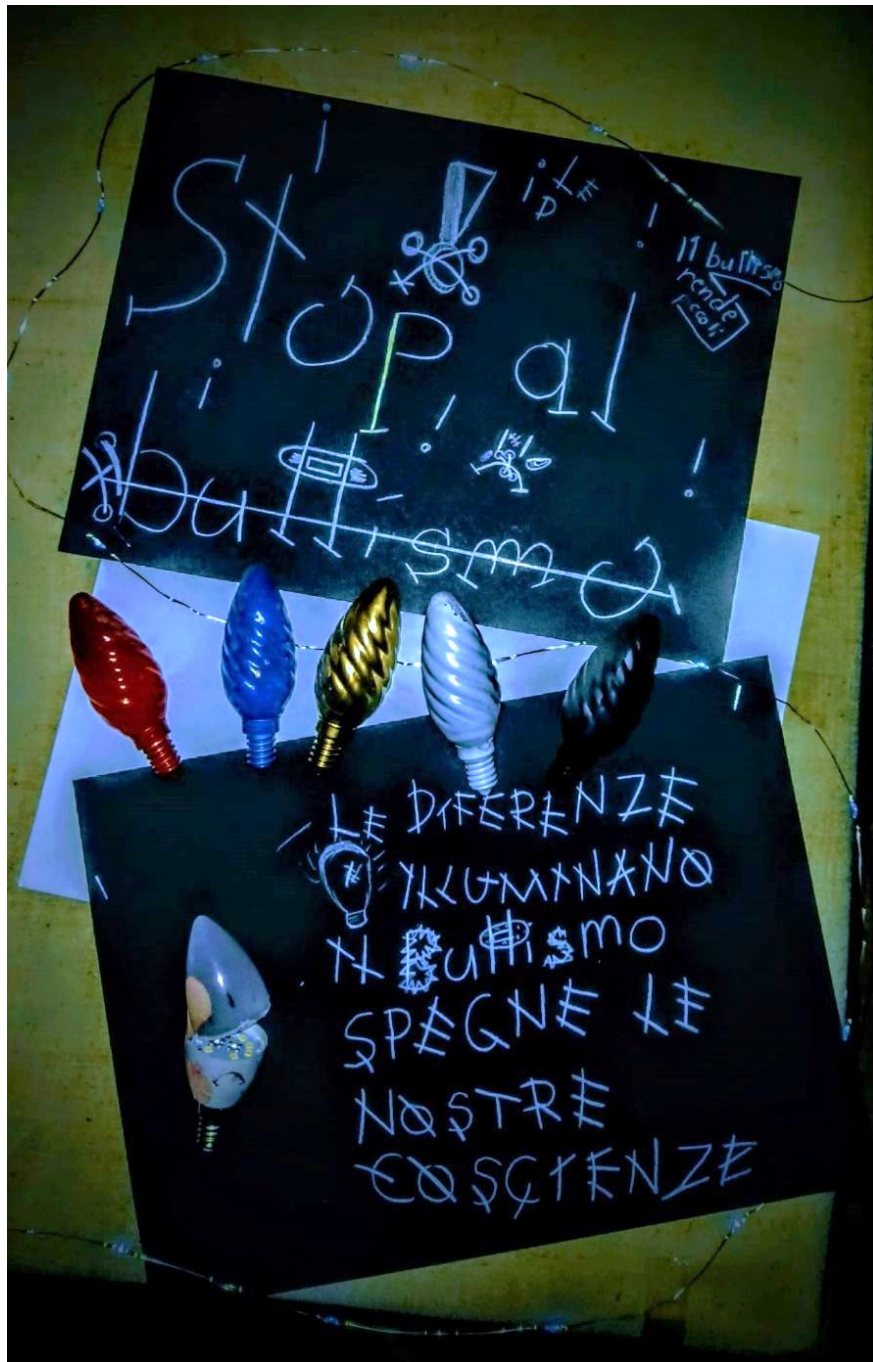 Stop al
bullismo
Il bullismo
rende
piccoli
LE DIFERENZE
ILLUMINANO
IL Bullismo
SPEGNE LE
NOSTRE
COSCIENZE